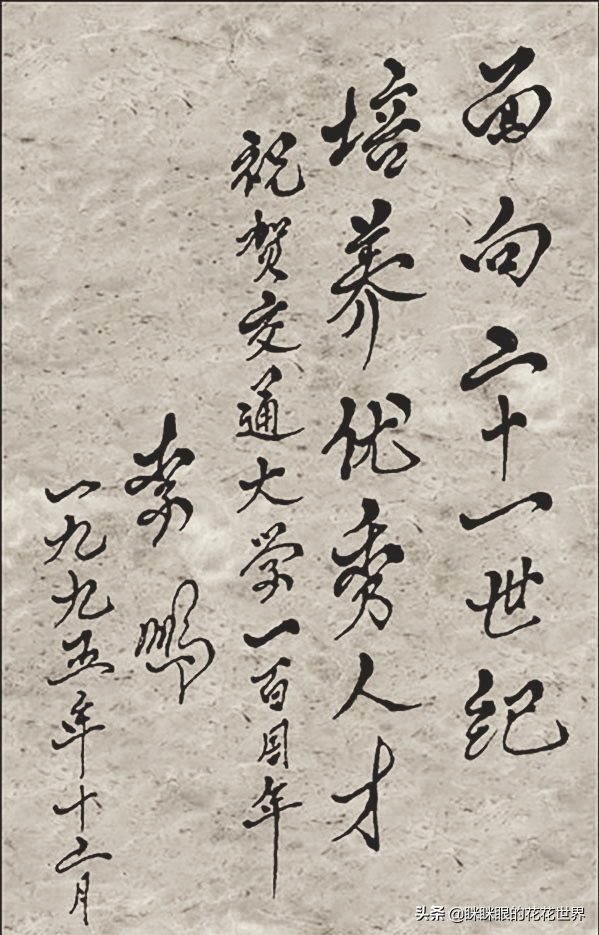 面向二十一世纪
培养优秀人才
祝贺交通大学一百周年
李鹏
一九九五年十二月
头条 @眯眯眼的花花世界